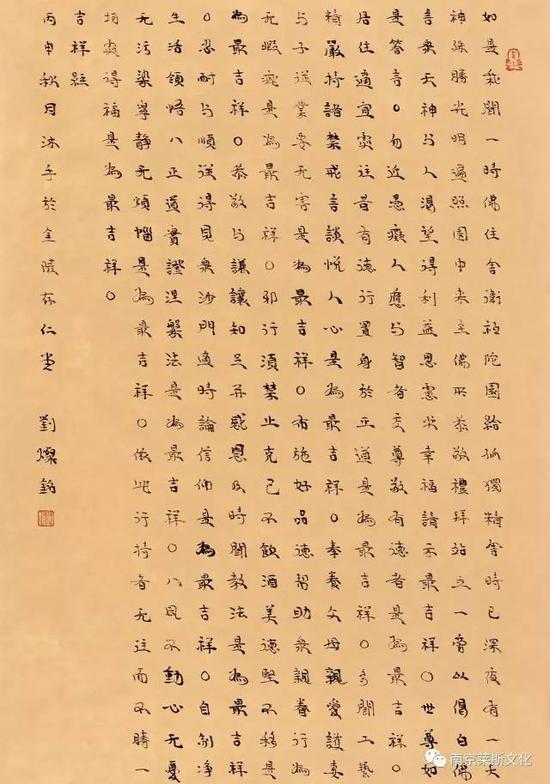 如是我聞一時佛住舍衛祇陀園給孤獨精舍時已深夜有一天
神殊勝光明遍照園中来至佛所恭敬禮拜站立一旁以偈白佛
言衆天神与人渴望得利益思慮求幸福請示最吉祥〇世尊如
是答言〇勿近愚癡人應与智者交尊敬有德者是為最吉祥〇
居住適宜處往昔有德行置身於正道是為最吉祥〇多聞工藝
精嚴持諸禁戒言談悦人心是為最吉祥〇奉養父母親愛護妻
与子從業要无害是為最吉祥〇布施好品德幫助衆親眷行為
无瑕疵是為最吉祥〇邪行須禁止克己不飲酒美德堅不移是
為最吉祥〇恭敬与謙讓知足并感恩及時聞教法是為最吉祥
〇忍耐与順從得見衆沙門適時論信仰是為最吉祥〇自制淨
生活領悟八正道實證涅槃法是為最吉祥〇八風不動心无憂
无污染寧靜无煩惱是為最吉祥〇依此行持者无往而不勝一
切處得福是為最吉祥〇
吉祥經
丙申秋月沐手於金陵存仁堂 劉燦銘
南京莱斯文化